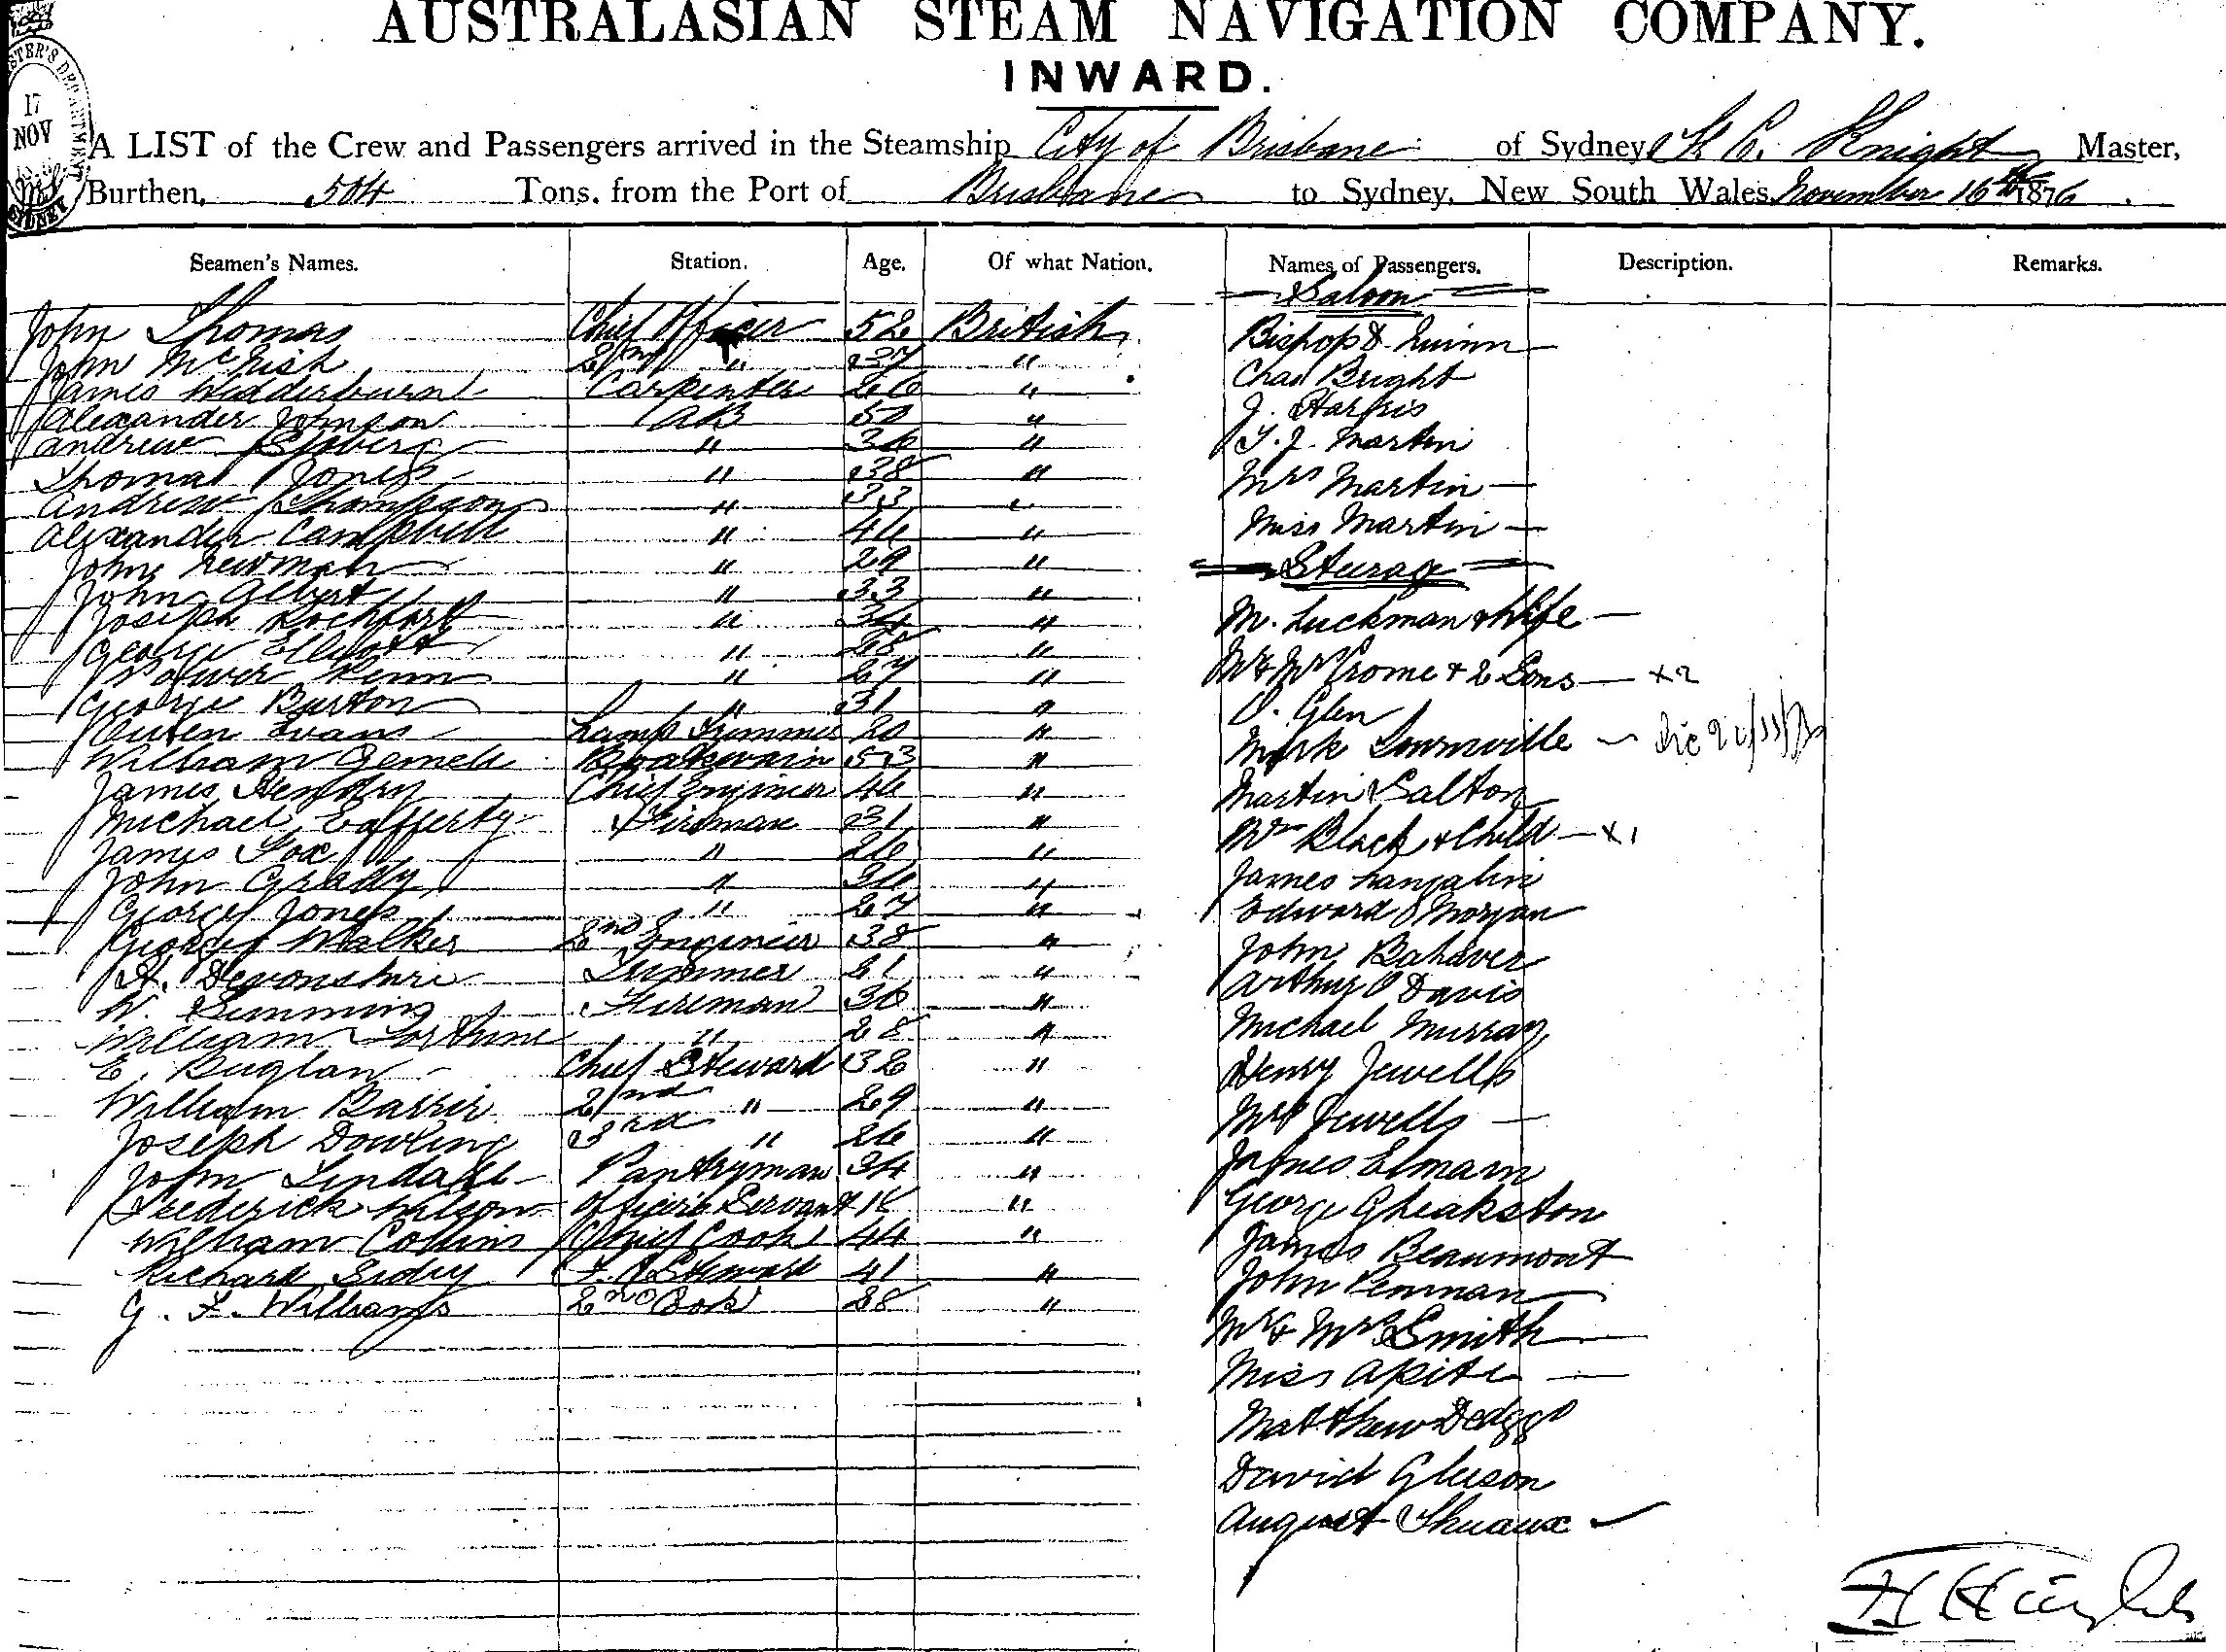 AUSTRALASIAN STEAM NAVIGATION COMPANY.
INWARD.
17
NOV
A LIST of the Crew and Passengers arrived in the Steamship City of Brisbane of Sydney Knight Master,
Burthen, 504 Tons, from the Port of Brisbane to Sydney, New South Wales November 16th 1876
Seamen's Names. Station. Age. Of what Nation. Names of Passengers. Description. Remarks.
Saloon
John Thomas Chief Officer 52 British Bishop Quinn
John McNish 2nd " 37 " Chas Bright
James Wedderburn Carpenter 26 " J. Harris
Alexander Johnson AB 50 " T. J. Martin
Andrew " 36 "
Thomas Jones " 38 " Mrs Martin
Andrew Thompson " 33 "
Alexander Campbell " 46 " Miss Martin
John Newman " 29 " Steerage
John Albert " 33 "
Joseph Rochfort " 34 " M. Luckman & Wife
George Elliott " 28 "
Kenn " 27 " Mr & Mrs Crome & 2 Sons x2
George Burton " 31 " Glen
Evans Lamp Trimmer 20 " Mark
William Gemell Boatswain 53 "
James Hendry Chief Engineer 46 " Martin Salton
Michael Cafferty Fireman 31 " Black & Child x1
James Fox " 26 "
John Grady " 36 " James
George Jones " 27 " Edward Morgan
George Walker 2nd Engineer 38 " John
H. Devonshire Trimmer 21 " Arthur Davis
W. Fireman 36 "
William " 28 " Michael Murray
E. Chief Steward 32 " Henry Jewells
William Barrir 2nd " 29 " Mrs Jewells
Joseph Dowling 3rd " 26 "
John Tindall Pantryman 34 " James
Frederick Officers Servant " George Gheakston
William Collins Chief Cook 44 " James Beaumont
Richard Sidey Steward 41 " John Penman
G. F. Williams 2nd Cook 28 "
Mr & Mrs Smith
Miss
Matthew
David Gleeson
August